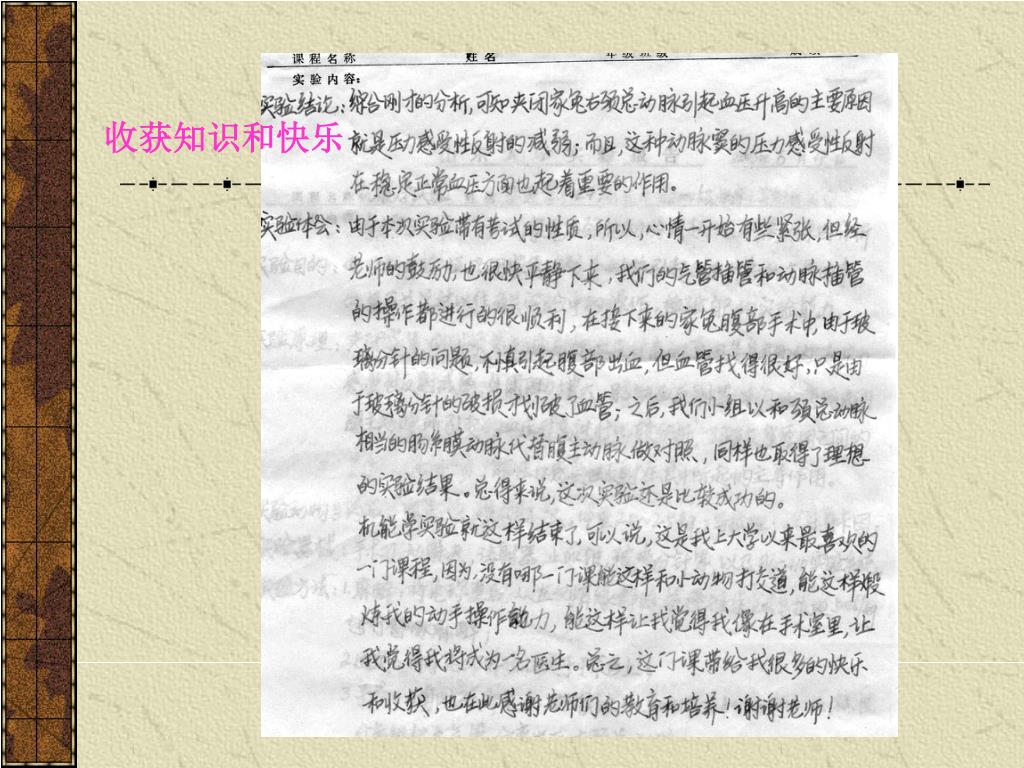 收获知识和快乐
课程名称 姓名 年级班级 成绩
实验内容:
实验结论:综合刚才的分析,可知夹闭家兔右颈总动脉引起血压升高的主要原因
就是压力感受性反射的减弱;而且,这种动脉窦的压力感受性反射
在稳定正常血压方面也起着重要的作用。
实验体会:由于本次实验带有考试的性质,所以,心情一开始有些紧张,但经
老师的鼓励,也很快平静下来,我们的气管插管和动脉插管
的操作都进行的很顺利,在接下来的家兔腹部手术中,由于玻
璃分针的问题,不慎引起腹部出血,但血管找得很好,只是由
于玻璃分针的破损才划破了血管;之后,我们小组以和颈总动脉
相当的肠系膜动脉代替腹主动脉做对照,同样也取得了理想
的实验结果。总得来说,这次实验还是比较成功的。
机能学实验就这样结束了,可以说,这是我上大学以来最喜欢的
一门课程,因为,没有哪一门课能这样和小动物打交道,能这样煅
炼我的动手操作能力,能这样让我觉得我像在手术室里,让
我觉得我将成为一名医生。总之,这门课带给我很多的快乐
和收获,也在此感谢老师们的教育和培养!谢谢老师!